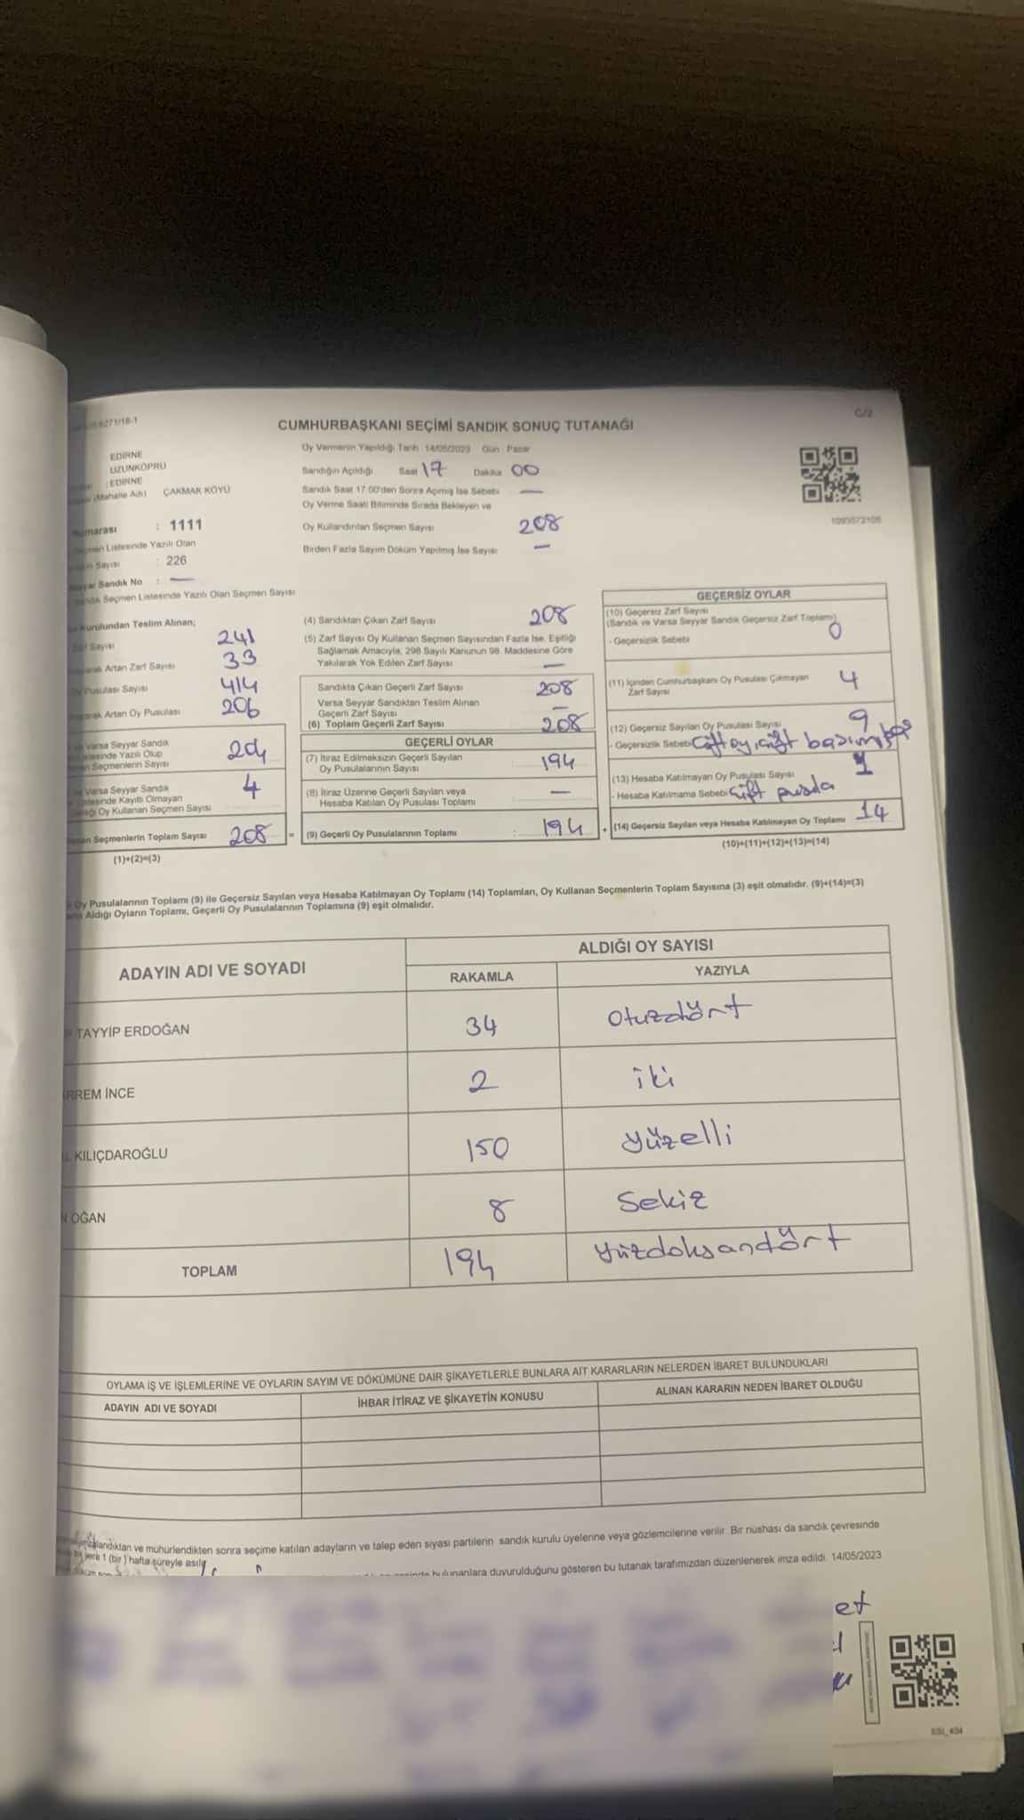 C/2
CUMHURBAŞKANI SEÇİMİ SANDIK SONUÇ TUTANAĞI
EDİRNE
UZUNKÖPRÜ
: EDİRNE
(Mahalle Adı) ÇAKMAK KÖYÜ
: 1111
Listesinde Yazılı Olan
Sayısı : 226
Sandık No : —
Seçmen Listesinde Yazılı Olan Seçmen Sayısı
Oy Vermenin Yapıldığı Tarih 14/05/2023 Gün : Pazar
Sandığın Açıldığı Saat 17 Dakika 00
Sandık Saat 17.00'den Sonra Açılmış İse Sebebi —
Oy Verme Saati Bitiminde Sırada Bekleyen ve
Oy Kullandırılan Seçmen Sayısı 208
Birden Fazla Sayım Döküm Yapılmış İse Sayısı —
1093072106
Kurulundan Teslim Alınan;
Zarf Sayısı 241
Artan Zarf Sayısı 33
Pusulası Sayısı 414
Artan Oy Pusulası 206
Varsa Seyyar Sandık
Listesinde Yazılı Olup
Seçmenlerin Sayısı 204
Varsa Seyyar Sandık
Listesinde Kayıtlı Olmayan
Oy Kullanan Seçmen Sayısı 4
Seçmenlerin Toplam Sayısı 208 =
(1)+(2)=(3)
(4) Sandıktan Çıkan Zarf Sayısı 208
(5) Zarf Sayısı Oy Kullanan Seçmen Sayısından Fazla İse, Eşitliği
Sağlamak Amacıyla, 298 Sayılı Kanunun 98. Maddesine Göre
Yakılarak Yok Edilen Zarf Sayısı —
Sandıkta Çıkan Geçerli Zarf Sayısı 208
Varsa Seyyar Sandıktan Teslim Alınan
Geçerli Zarf Sayısı —
(6) Toplam Geçerli Zarf Sayısı 208
GEÇERLİ OYLAR
(7) İtiraz Edilmeksizin Geçerli Sayılan
Oy Pusulalarının Sayısı 194
(8) İtiraz Üzerine Geçerli Sayılan veya
Hesaba Katılan Oy Pusulası Toplamı —
(9) Geçerli Oy Pusulalarının Toplamı : 194 +
GEÇERSİZ OYLAR
(10) Geçersiz Zarf Sayısı
(Sandık ve Varsa Seyyar Sandık Geçersiz Zarf Toplamı) 0
- Geçersizlik Sebebi
(11) İçinden Cumhurbaşkanı Oy Pusulası Çıkmayan
Zarf Sayısı 4
(12) Geçersiz Sayılan Oy Pusulası Sayısı 9
- Geçersizlik Sebebi Çift oy, çift
(13) Hesaba Katılmayan Oy Pusulası Sayısı 1
- Hesaba Katılmama Sebebi Çift pusula
(14) Geçersiz Sayılan veya Hesaba Katılmayan Oy Toplamı 14
(10)+(11)+(12)+(13)=(14)
Oy Pusulalarının Toplamı (9) ile Geçersiz Sayılan veya Hesaba Katılmayan Oy Toplamı (14) Toplamları, Oy Kullanan Seçmenlerin Toplam Sayısına (3) eşit olmalıdır. (9)+(14)=(3)
Aldığı Oyların Toplamı, Geçerli Oy Pusulalarının Toplamına (9) eşit olmalıdır.
ADAYIN ADI VE SOYADI ALDIĞI OY SAYISI
RAKAMLA YAZIYLA
TAYYİP ERDOĞAN 34 otuzdört
RREM İNCE 2 iki
KILIÇDAROĞLU 150 yüzelli
OĞAN 8 Sekiz
TOPLAM 194 yüzdoksandört
OYLAMA İŞ VE İŞLEMLERİNE VE OYLARIN SAYIM VE DÖKÜMÜNE DAİR ŞİKAYETLERLE BUNLARA AİT KARARLARIN NELERDEN İBARET BULUNDUKLARI
ADAYIN ADI VE SOYADI İHBAR İTİRAZ VE ŞİKAYETİN KONUSU ALINAN KARARIN NEDEN İBARET OLDUĞU
ve mühürlendikten sonra seçime katılan adayların ve talep eden siyasi partilerin sandık kurulu üyelerine veya gözlemcilerine verilir. Bir nüshası da sandık çevresinde
1 (bir) hafta süreyle asılır
bulunanlara duyurulduğunu gösteren bu tutanak tarafımızdan düzenlenerek imza edildi. 14/05/2023
et